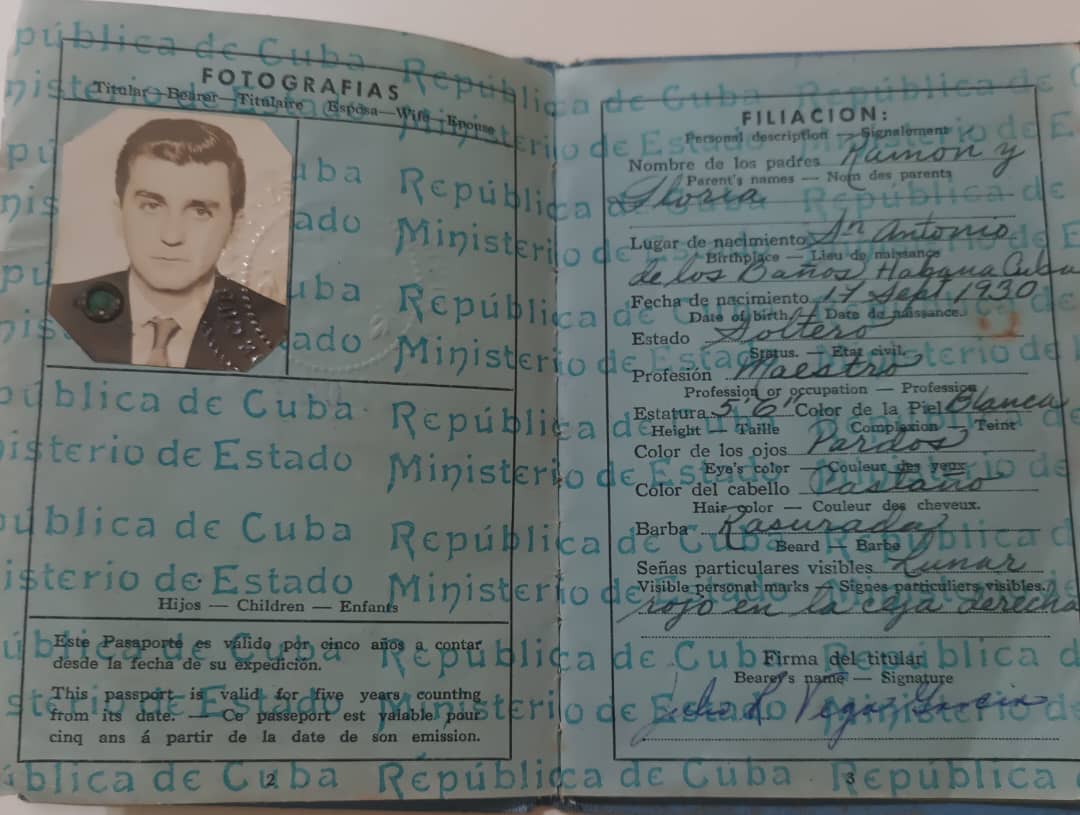 FOTOGRAFIAS
Titular — Bearer — Titulaire Esposa — Wife — Epouse
Hijos — Children — Enfants
Este Pasaporte es válido por cinco años a contar
desde la fecha de su expedición.
This passport is valid for five years counting
from its date. — Ce passeport est valable pour
cinq ans á partir de la date de son emission.
2
FILIACION:
Personal description — Signalement
Nombre de los padres Ramon y
Parent's names — Nom des parents
Gloria
Lugar de nacimiento Sn Antonio
Birthplace — Lieu de naissance
de los Baños Habana Cuba
Fecha de nacimiento 17 Sept 1930
Date of birth Date de naissance.
Estado Soltero
Status. — Etat civil.
Profesión Maestro
Profession or occupation — Profession
Estatura 5' 6" Color de la Piel Blanca
Height — Taille Complexion — Teint
Color de los ojos Pardos
Eye's color — Couleur des yeux
Color del cabello Castaño
Hair color — Couleur des cheveux.
Barba Rasurada
Beard — Barbe
Señas particulares visibles Lunar
Visible personal marks — Signes particuliers visibles.
rojo en la ceja derecha
Firma del titular
Bearer's name — Signature
R. Vega García
3
República de Cuba
Ministerio de Estado